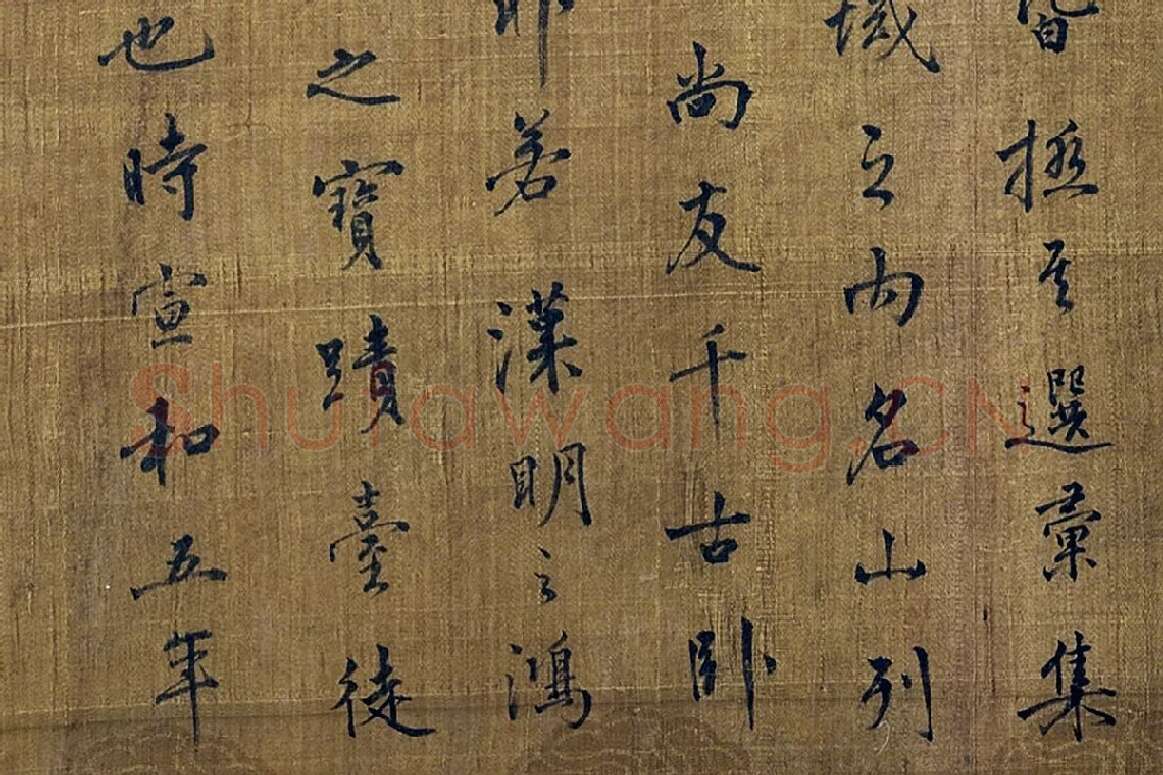 皆極其選彙集
域之内名山列
尚友千古卧
耶若漢明之鴻
之寶蹟臺徒
也時宣和五年
Shufawang.CN